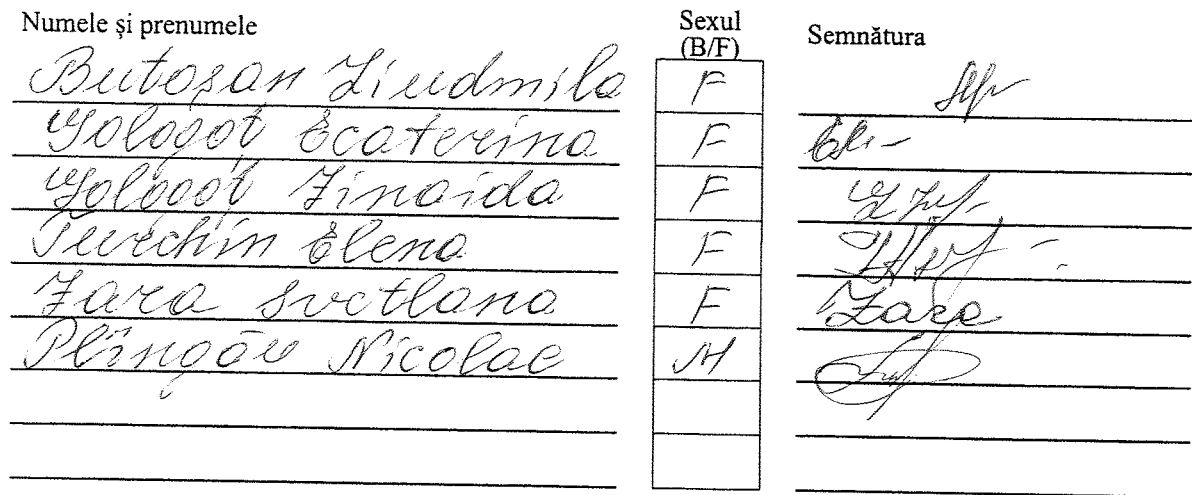 Numele și prenumele Sexul (B/F) Semnătura
Butoșan Liudmila F
Gologoț Ecaterina F
Gologoț Zinaida F
Turechin Elena F
Zara Svetlana F Zara
Plîngău Nicolae M